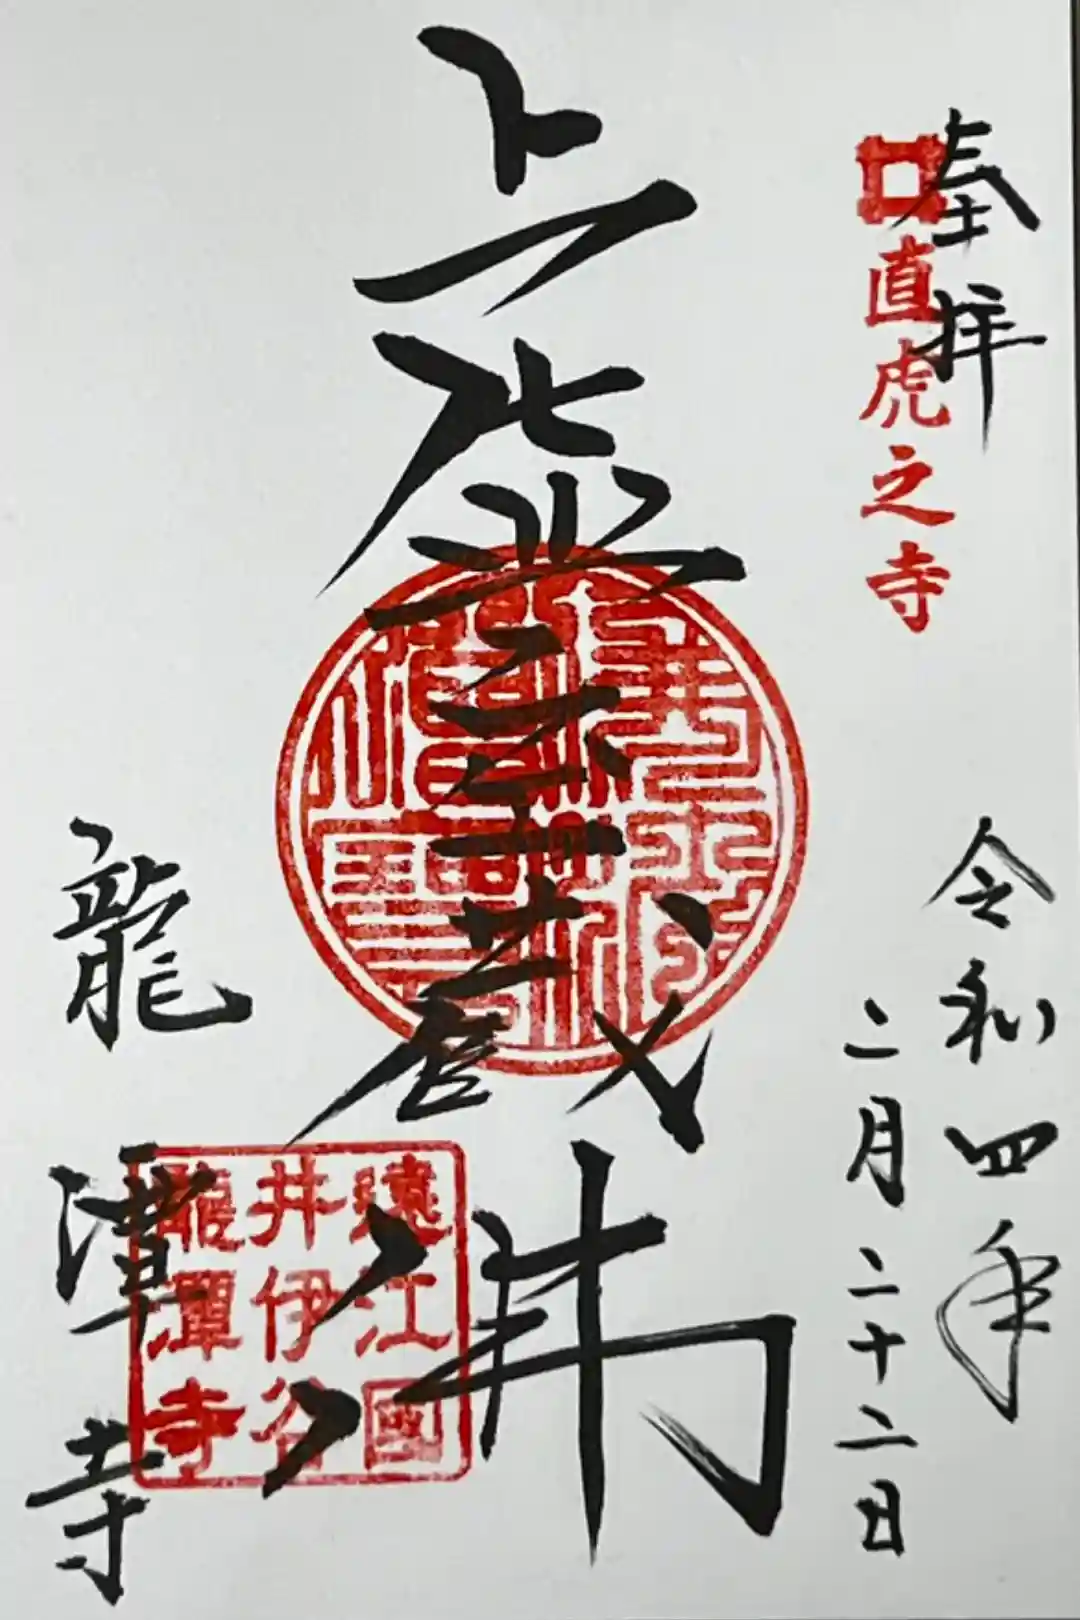 奉拝
直虎之寺
令和四年
二月二十二日
虚空蔵
龍潭寺
遠江國
井伊谷
龍潭寺